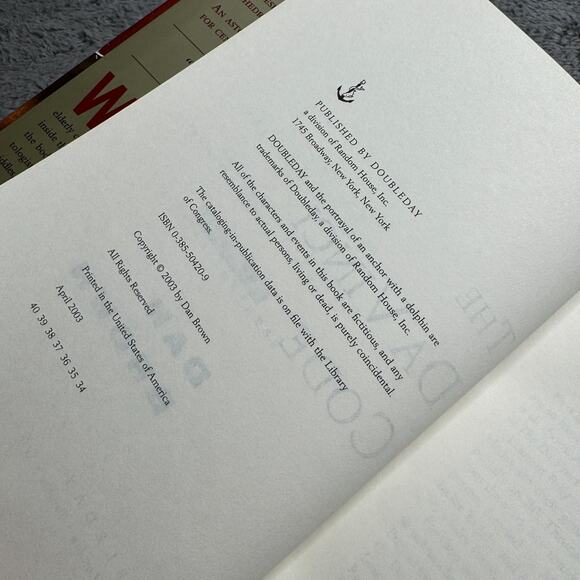 PUBLISHED BY DOUBLEDAY
a division of Random House, Inc.
1745 Broadway, New York, New York
DOUBLEDAY and the portrayal of an anchor with a dolphin are
trademarks of Doubleday, a division of Random House, Inc.
All of the characters and events in this book are fictitious, and any
resemblance to actual persons, living or dead, is purely coincidental.
The cataloging-in-publication data is on file with the Library
of Congress.
ISBN 0-385-50420-9
Copyright © 2003 by Dan Brown
All Rights Reserved
Printed in the United States of America
April 2003
40 39 38 37 36 35 34
THE
DA VINCI
CODE
DAN
AN AST
FOR CEN
W
elderly
inside th
the bo
tologis